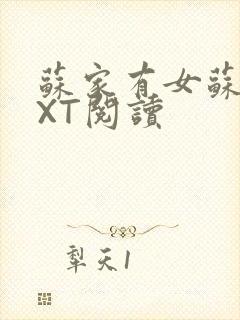 蘇家有女蘇
XT閱讀
犁天1